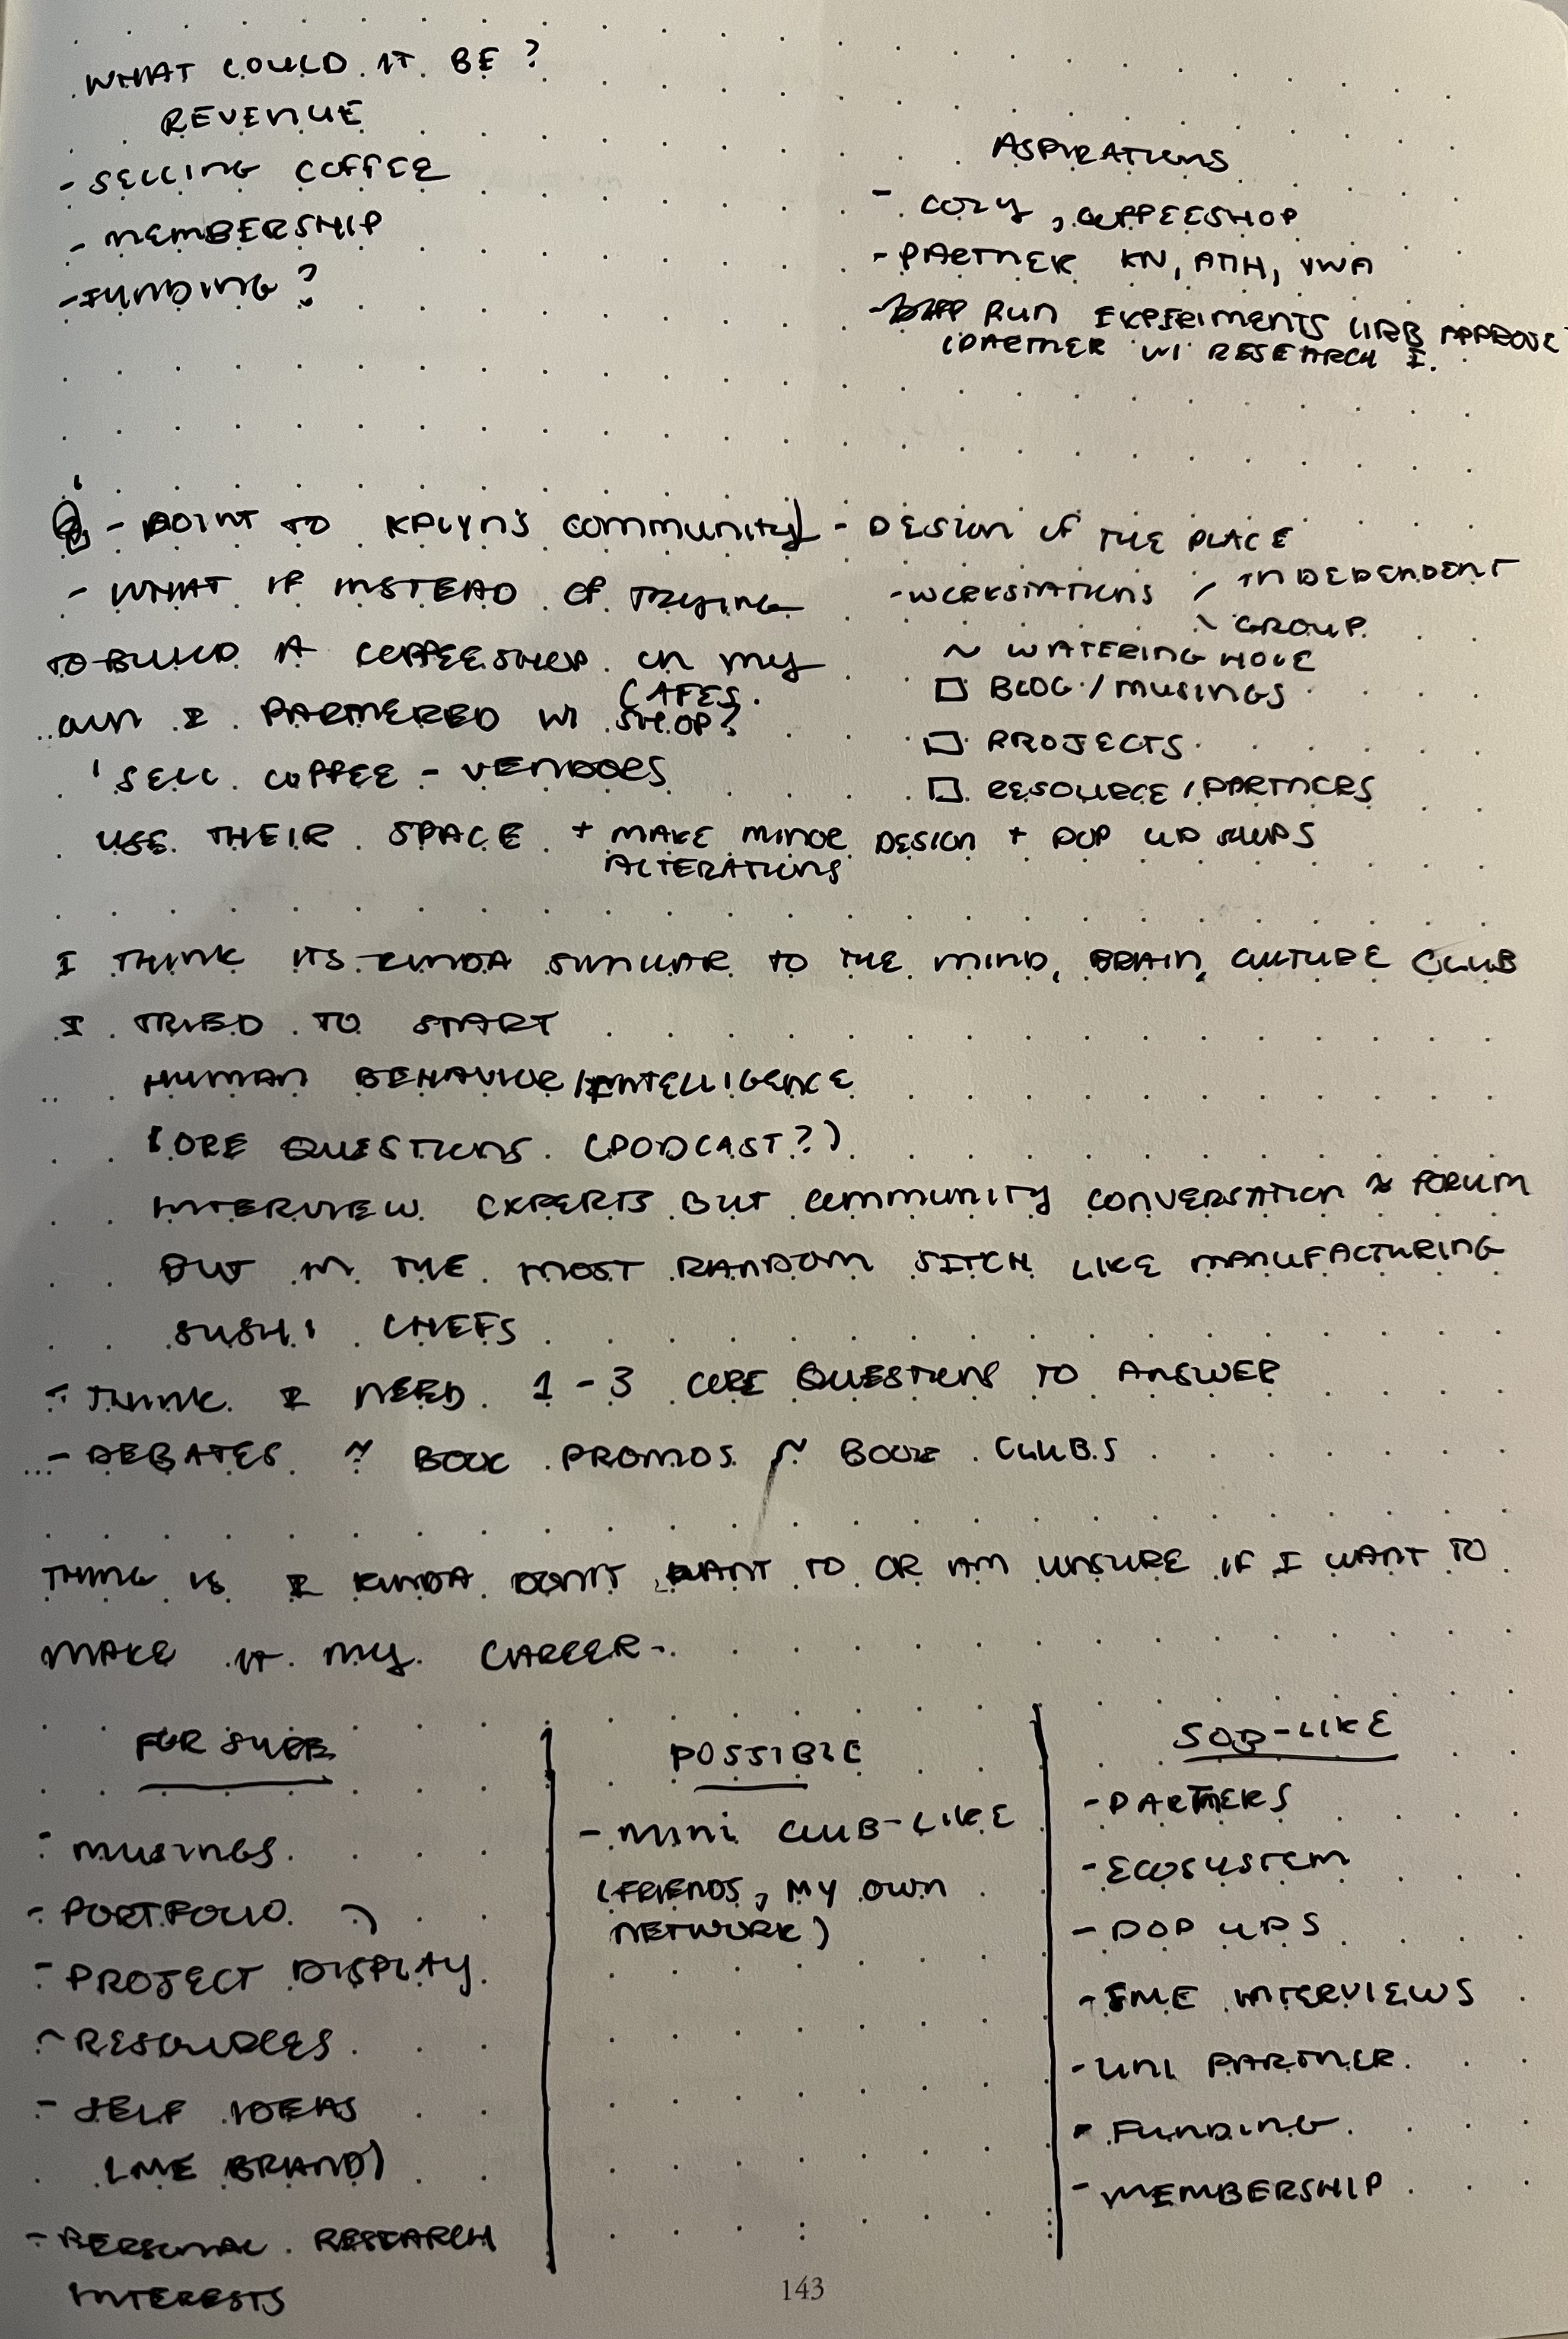 WHAT COULD IT BE?
REVENUE
- SELLING COFFEE
- MEMBERSHIP
- FUNDING?
ASPIRATIONS
- COZY, COFFEESHOP
- PARTNER KN, ATH, VWA
- RUN EXPERIMENTS (IRB APPROVE
(PARTNER W/ RESEARCH I.
- POINT TO COMMUNITY
- WHAT IF INSTEAD OF TRYING
TO BUILD A COFFEESHOP ON MY
OWN I PARTNERED W/ CAFES. SHOP?
SELL COFFEE - VENDORS
- DESIGN OF THE PLACE
- WORKSTATIONS / INDEPENDENT
\ GROUP
~ WATERING HOLE
□ BLOG / MUSINGS
□ PROJECTS
□ RESOURCE / PARTNERS
USE THEIR SPACE + MAKE MINOR DESIGN + POP UP SHOPS
ALTERATIONS
I THINK ITS KINDA SIMILAR TO THE MIND, BRAIN, CULTURE CLUB
I TRIED TO START
HUMAN BEHAVIOR/INTELLIGENCE
CORE QUESTIONS (PODCAST?)
INTERVIEW EXPERTS BUT COMMUNITY CONVERSATION ~ FORUM
BUT IN THE MOST RANDOM SITCH LIKE MANUFACTURING
SUSHI CHEFS
- THINK I NEED 1-3 CORE QUESTIONS TO ANSWER
- DEBATES ~ BOOK PROMOS ~ BOOK CLUBS
THING IS I KINDA DON'T WANT TO OR AM UNSURE IF I WANT TO
MAKE IT MY CAREER -
FOR SURE
- MUSINGS
- PORTFOLIO
- PROJECT DISPLAY
- RESOURCES
- SELF IDEAS
(ME BRAND)
- PERSONAL RESEARCH
INTERESTS
POSSIBLE
- MINI CLUB-LIKE
(FRIENDS, MY OWN
NETWORK)
SOB-LIKE
- PARTNERS
- ECOSYSTEM
- POP UPS
- SME INTERVIEWS
- UNI PARTNER
- FUNDING
- MEMBERSHIP
143